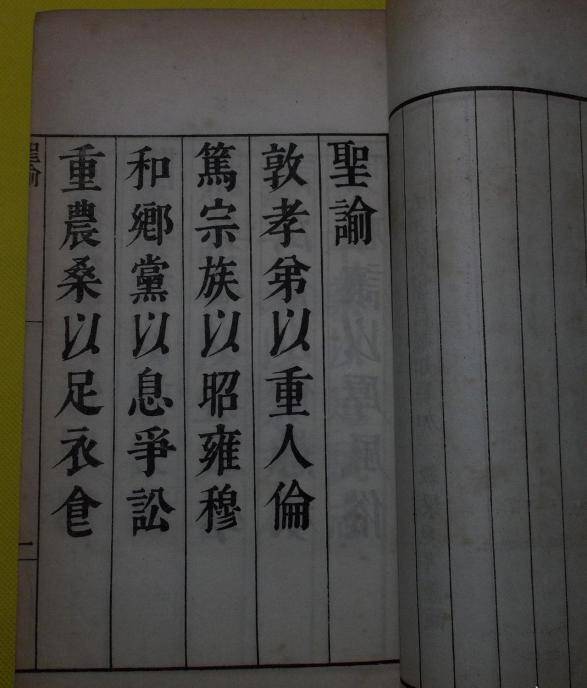 聖諭
敦孝弟以重人倫
篤宗族以昭雍穆
和鄉黨以息爭訟
重農桑以足衣食
聖諭
一